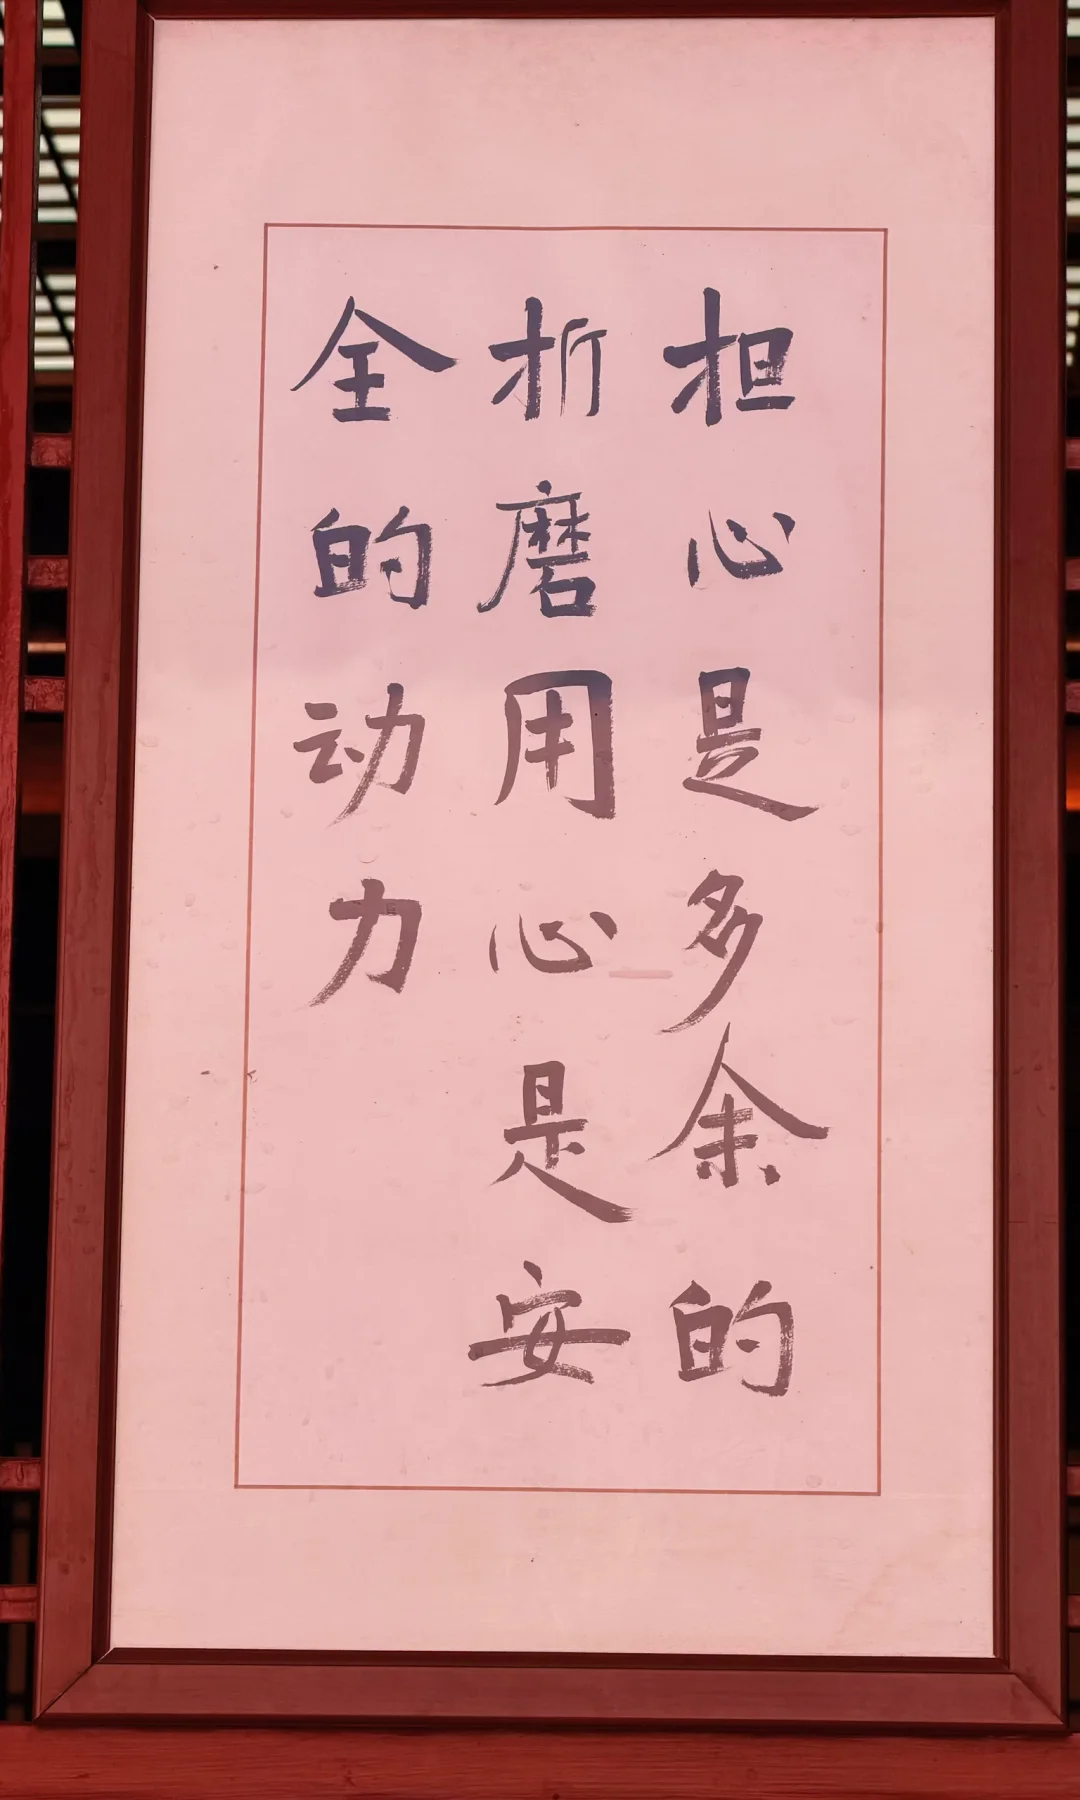 担心是多余的
折磨用心是安
全的动力